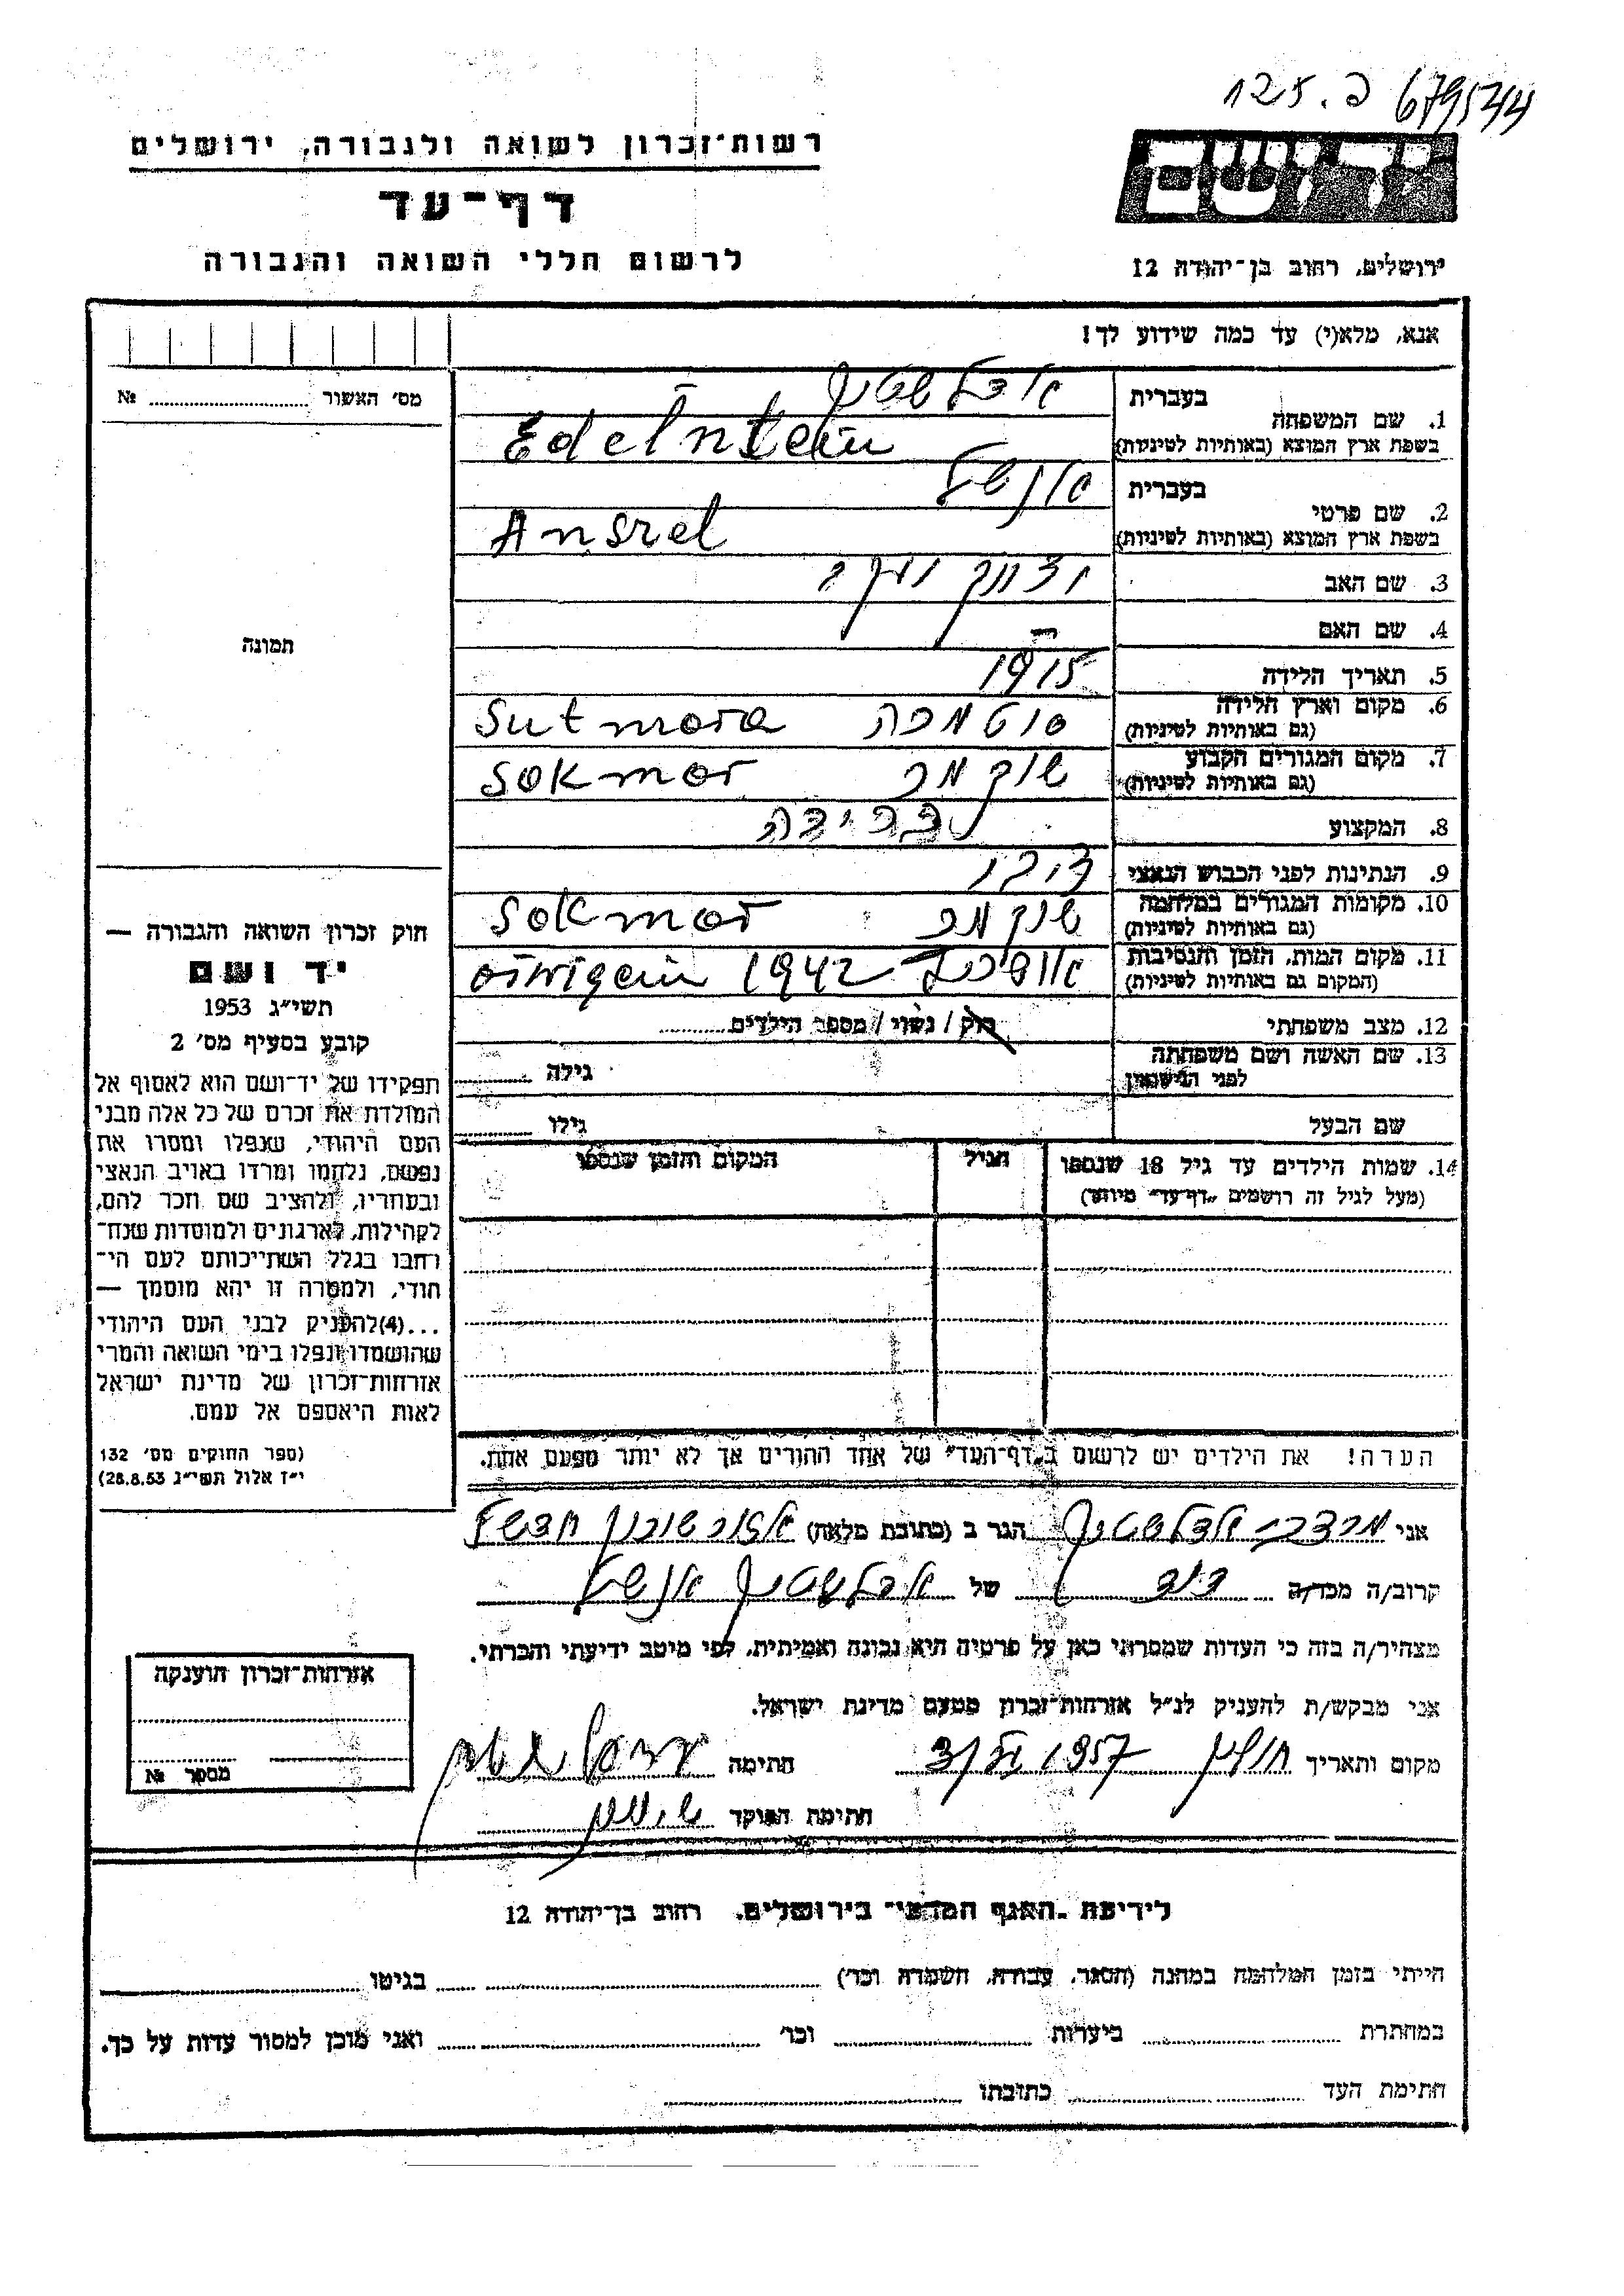 679544 פ. 125
רשות־זכרון לשואה ולגבורה, ירושלים
דף־עד
לרשום חללי השואה והגבורה
יד ושם
ירושלים, רחוב בן־יהודה 12
אנא, מלא(י) עד כמה שידוע לך!
מס׳ האשור № 
תמונה
1. שם המשפחה בעברית אדלשטיין
בשפת ארץ המוצא (באותיות לטיניות) Edelnstein
2. שם פרטי בעברית אנשל
בשפת ארץ המוצא (באותיות לטיניות) Anszel
3. שם האב
4. שם האם —
5. תאריך הלידה 1915
6. מקום וארץ הלידה סוטמרה Sutmora
(גם באותיות לטיניות)
7. מקום המגורים הקבוע שוקמר Sokmor
(גם באותיות לטיניות)
8. המקצוע
9. הנתינות לפני הכבוש הנאצי
10. מקומות המגורים במלחמה שוקמר Sokmor
(גם באותיות לטיניות)
11. מקום המות, הזמן והנסיבות 1942
(המקום גם באותיות לטיניות)
12. מצב משפחתי רוק / נשוי / מספר הילדים
13. שם האשה ושם משפחתה
לפני הנישואין גילה
שם הבעל גילו
14. שמות הילדים עד גיל 18 שנספו הגיל המקום והזמן שנספו
(מעל לגיל זה רושמים „דף־עד״ מיוחד)
חוק זכרון השואה והגבורה —
יד ושם
תשי״ג 1953
קובע בסעיף מס׳ 2
תפקידו של יד־ושם הוא לאסוף אל
המולדת את זכרם של כל אלה מבני
העם היהודי, שנפלו ומסרו את
נפשם, נלחמו ומרדו באויב הנאצי
ובעוזריו, ולהציב שם וזכר להם,
לקהילות, לארגונים ולמוסדות שנח־
רחבו בגלל השתייכותם לעם הי־
חודי, ולמטרה זו יהא מוסמך —
...(4) להעניק לבני העם היהודי
שהושמדו ונפלו בימי השואה והמרי
אזרחות־זכרון של מדינת ישראל
לאות היאספם אל עמם.
(ספר החוקים מס׳ 132
י״ז אלול תשי״ג 28.8.53)
הערה! את הילדים יש לרשום ב„דף־העד״ של אחד ההורים אך לא יותר מפעם אחת.
אני מרדכי אדלשטיין הגר ב (כתובת מלאה)
קרוב/ה מכר/ה דוד של אדלשטיין אנשל
מצהיר/ה בזה כי העדות שמסרתי כאן על פרטיה היא נכונה ואמיתית, לפי מיטב ידיעתי והכרתי.
אני מבקש/ת להעניק לנ״ל אזרחות־זכרון מטעם מדינת ישראל.
מקום ותאריך חולון 1957 חתימה
חתימת הפוקד
אזרחות־זכרון הוענקה
מספר №
לידיעת האגף המדעי בירושלים, רחוב בן־יהודה 12
הייתי בזמן המלחמה במחנה (הסגר, עבודה, השמדה וכו׳) בגיטו
במחתרת ביערות וכו׳ ואני מוכן למסור עדות על כך.
חתימת העד כתובתו